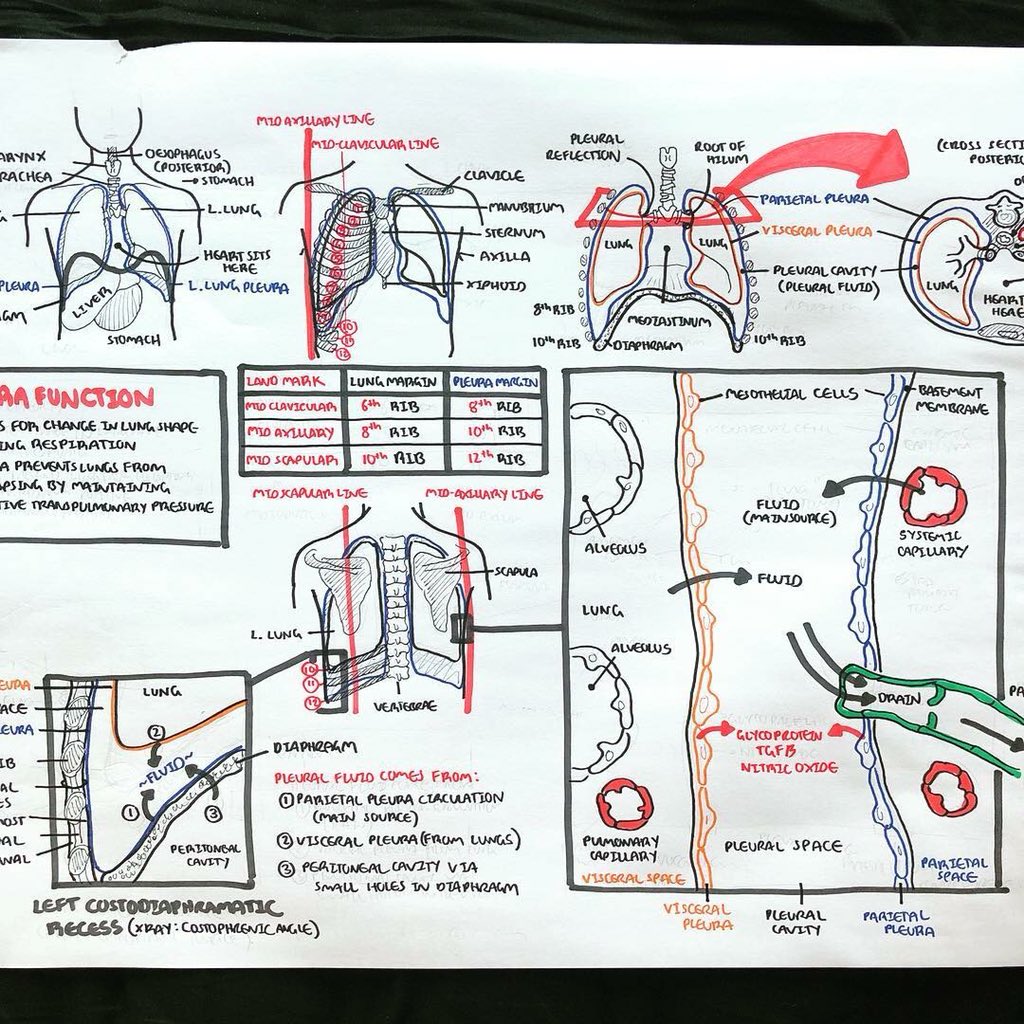 MID AXILLARY LINE
MID-CLAVICULAR LINE
ARYNX
RACHEA
OESOPHAGUS
(POSTERIOR)
STOMACH
L.LUNG
HEART SITS
HERE
PLEURA
L.LUNG PLEURA
GM
LIVER
STOMACH
CLAVICLE
MANUBRIUM
STERNUM
AXILLA
XIPHUID
10
11
12
PLEURAL
REFLECTION
ROOT OF
HILUM
PARIETAL PLEURA
VISCERAL PLEURA
PLEURAL CAVITY
(PLEURAL FLUID)
LUNG
LUNG
8th RIB
10th RIB
MEDIASTINUM
DIAPHRAGM
10th RIB
(CROSS SECTI
POSTERIO
LUNG
HEART
HERE
RA FUNCTION
S FOR CHANGE IN LUNG SHAPE
ING RESPIRATION
A PREVENTS LUNGS FROM
APSING BY MAINTAINING
TIVE TRANSPULMONARY PRESSURE
LAND MARK LUNG MARGIN PLEURA MARGIN
MID CLAVICULAR 6th RIB 8th RIB
MID AXILLARY 8th RIB 10th RIB
MID SCAPULAR 10th RIB 12th RIB
MID SCAPULAR LINE
MID-AXILLARY LINE
SCAPULA
L. LUNG
10
11
12
VERTEBRAE
EURA
ACE
LEURA
IB
AL
ES
MOST
AL
NAL
LUNG
2
~FLUID~
1
3
DIAPHRAGM
PERITONEAL
CAVITY
LEFT CUSTODIAPHRAMATIC
RECESS (XRAY: COSTOPHRENIC ANGLE)
PLEURAL FLUID COMES FROM:
1 PARIETAL PLEURA CIRCULATION
(MAIN SOURCE)
2 VISCERAL PLEURA (FROM LUNGS)
3 PERITONEAL CAVITY VIA
SMALL HOLES IN DIAPHRAGM
MESOTHELIAL CELLS
BASEMENT
MEMBRANE
FLUID
(MAIN SOURCE)
SYSTEMIC
CAPILLARY
ALVEOLUS
FLUID
LUNG
ALVEOLUS
DRAIN
PA
GLYCOPROTEIN
TGFB
NITRIC OXIDE
PULMONARY
CAPILLARY
VISCERAL SPACE
PLEURAL SPACE
PARIETAL
SPACE
VISCERAL
PLEURA
PLEURAL
CAVITY
PARIETAL
PLEURA